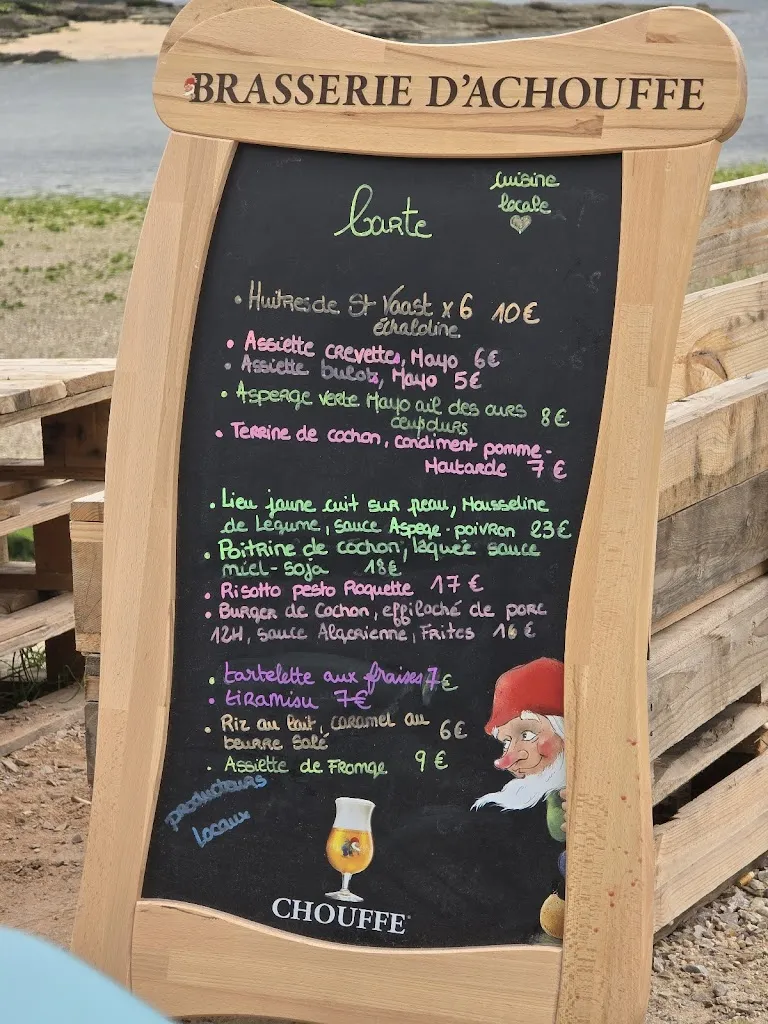 BRASSERIE D'ACHOUFFE
Cuisine
locale
Carte
• Huitres de St Vaast x 6 10€
échalotine
• Assiette crevettes, Mayo 6€
• Assiette bulots, Mayo 5€
• Asperge verte Mayo ail des ours 8€
oeufs durs
• Terrine de cochon, condiment pomme-
Moutarde 7€
• Lieu jaune cuit sur peau, Mousseline
de Légume, sauce Asperge-poivron 23€
• Poitrine de cochon, laquée sauce
miel-soja 18€
• Risotto pesto Roquette 17€
• Burger de Cochon, effiloché de porc
12H, sauce Algerienne, Frites 16€
• tartelette aux fraises 7€
• tiramisu 7€
• Riz au lait, caramel au 6€
beurre salé
• Assiette de Fromge 9€
producteurs
locaux
CHOUFFE